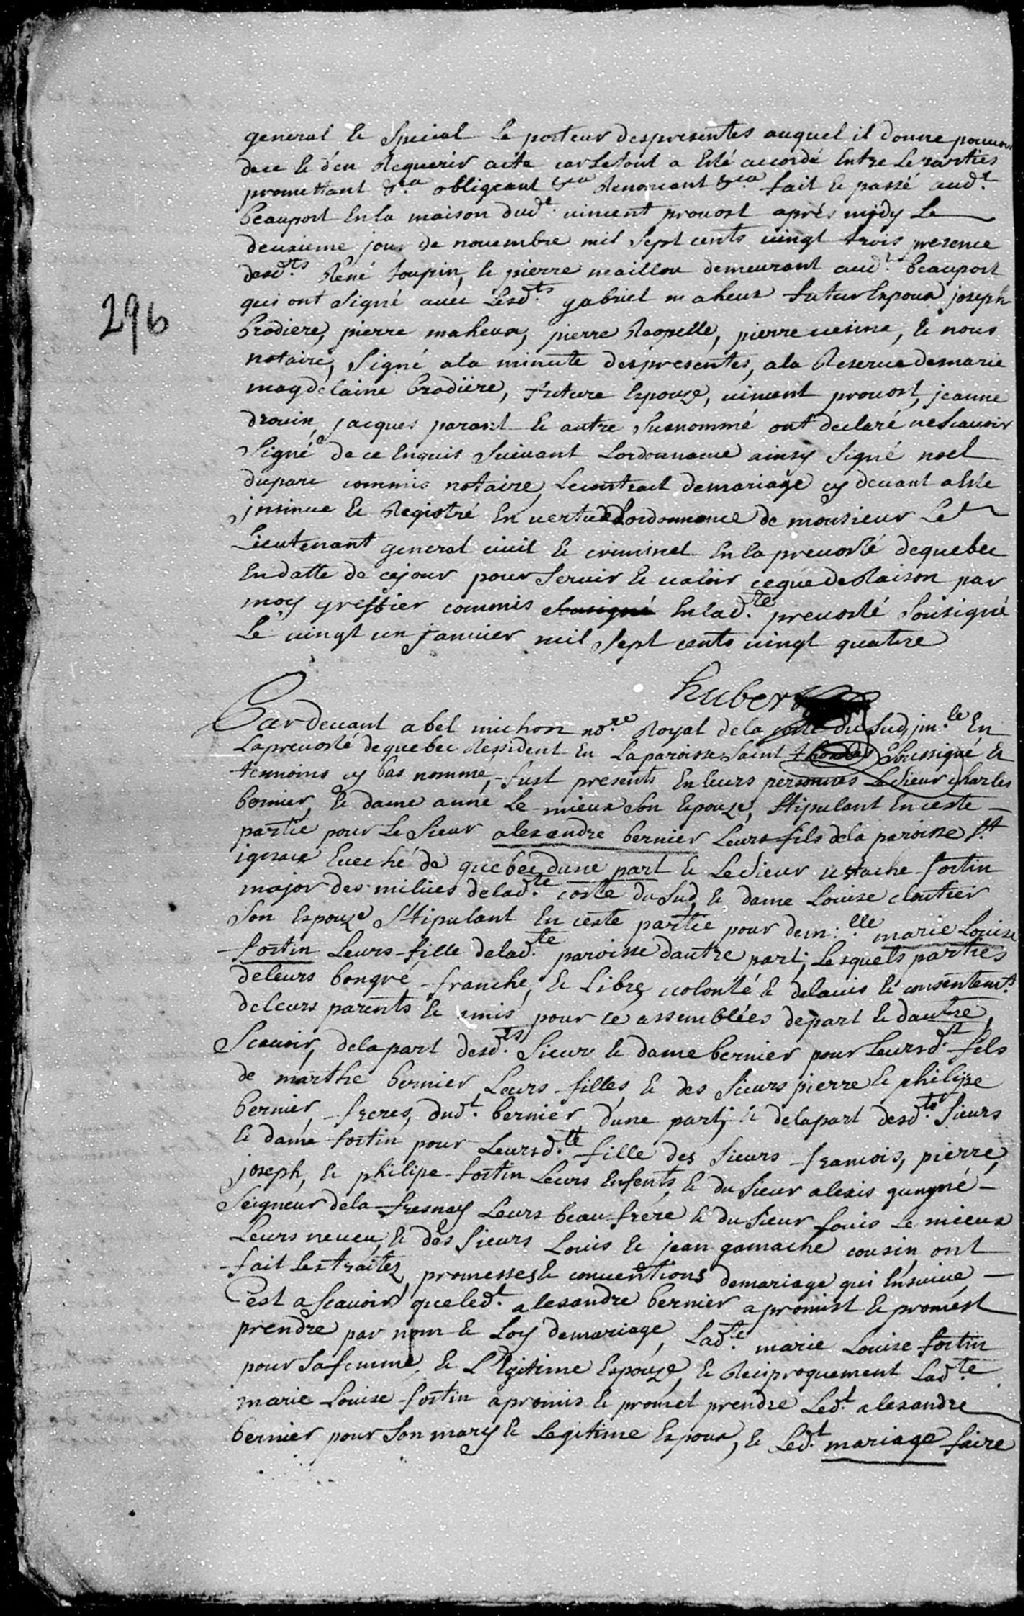 general & special le porteur des presentes auquel il donne pouvoir
de ce & d'en Requerir acte car le tout a esté accordé Entre Les parties
promettant &a obligeant &a Renoncant &ca fait & passé aud.t
Beauport En la maison dud.t vincent provost aprés midy Le
deuxieme jour de novembre mil sept cents vingt trois presence
desd.ts René toupin, & pierre maillou demeurant aud.t Beauport
qui ont signé avec Lesd.ts gabriel maheux futur Epoux joseph
Brodiere, pierre maheux, pierre Rapelle, pierre vesine, & nous
296
notaire, signé a la minute des presentes, a la Reserve de marie
magdelaine Brodiere, future Epouze, vincent provost, jeanne
drouin, jacques parant & autre susnommé ont declaré ne scavoir
signé de ce Enquis suivant Lordonnance ainsy signé noel
duparc commis notaire, Le contract de mariage cy devant a Eté
jnsinue & Registré En vertu de Lordonnance de monsieur Le
Lieutenant general civil & criminel En la prevosté de quebec
En datte de ce jour pour servir & valoir ce que de Raison par
moy greffier commis En lad.te prevosté sousigné
Le vingt un janvier mil sept cents vingt quatre
hubert
Par devant abel michon no.re Royal de la coste du Sud, jm.le En
La prevosté de quebec Resident En La paroisse Saint thomas soussigné &
temmoins cy bas nommé, fust presents En leurs personnes Le Sieur charles
bernier, & dame anne Le mieux son Epouze, stipulant En ceste
partie pour Le Sieur alexandre bernier Leurs fils de la paroisse S.t
ignace Eveché de quebec dune part & Le Sieur ustache fortin
major des milices de lad.te coste du Sud & dame Louise cloutier
Son Epouze stipulant En ceste partie pour dem.lle marie Louise
fortin Leurs fille de lad.te paroisse dautre part; Lesquels parties
de leurs bon gré franche, & Libre volonté & de lavis & consentem.t
de leurs parents & amis pour ce assemblées de part & dautre,
Scavoir, de la part desd.ts Sieur & dame bernier pour Leursd.t fils
de marthe bernier Leurs filles & des Sieurs pierre & philipe
bernier, freres, dud.t bernier dune part; & de la part desd.ts Sieurs
& dame fortin pour Leursd.te fille des Sieurs francois, pierre,
joseph, & philipe fortin Leurs Enfents, & du Sieur alexis guyné
Seigneur de la fresnay Leurs beau frere & du Sieur Louis Le mieux
Leurs neveu, & des Sieurs Louis & jean gamache cousin ont
fait Les traitez, promesses & conventions de mariage qui Ensuive
C'est a scavoir que led.t alexandre bernier a promist & promest
prendre par nom & Loy de mariage, Lad.te marie Louise fortin
pour sa femme, & L'Egitime Epouze, & Reciproquement Lad.te
marie Louise fortin a promis & promet prendre Led.t alexandre
bernier pour son mary & Legitime Epoux, & Led.t mariage faire